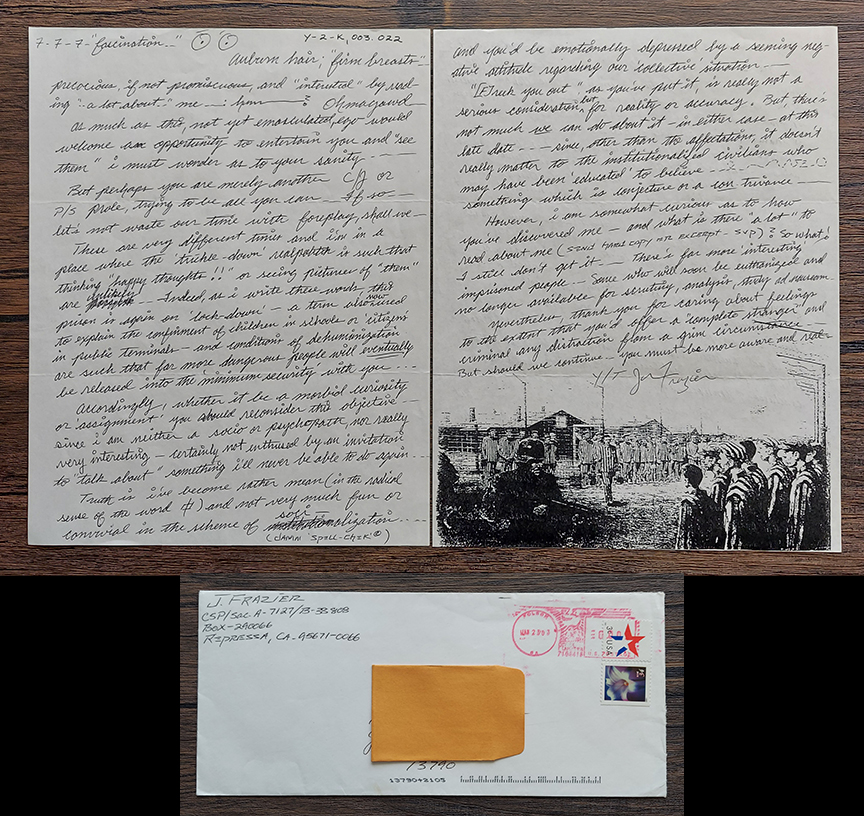 7-7-7-"fascination..."
Y-2-K, 003.022
Auburn hair, "firm breasts"
precocious, if not promiscuous, and "interested" by read-
ing "a lot about" me ... hmm ? Ohmagawd
As much as this, not yet emasculated, ego would
welcome an opportunity to entertain you and "see
them" i must wonder as to your sanity
But perhaps you are merely another CJ or
P/S prole, trying to be all you can - If so -
let's not waste our time with foreplay, shall we -
These are very different times and i'm in a
place where the 'trickle-down' realpolitik is such that
thinking "happy thoughts!!" or seeing pictures of "them"
are unlikely - Indeed, as i write these words this
prison is again on 'lock-down' - a term also now used
to explain the confinment of children in schools or 'citizens'
in public terminals - and conditions of dehumanization
are such that far more dangerous people will eventually
be released into the 'minimum' security with you ...
Accordingly, whether it be a morbid curiosity
or 'assignment' you should reconsider this objective -
since i am neither a socio or psychopath, nor really
very interesting - certainly not enthused by an invitation
to "talk about" something i'll never be able to do again ...
Truth is i've become rather mean (in the radical
sense of the word #) and not very much fun or
convivial in the scheme of socialization ...
(DAMN 'Spell-Chek'®)
and you'd be emotionally depressed by a seeming neg-
ative attitude regarding our 'collective' situation -
"[F]reak you out" as you've put it, is really not a
serious consideration but for reality or accuracy. But there's
not much we can do about it - in either case - at this
late date - - - since, other than the affectations, it doesn't
really matter to the institutionalized civilians who
may have been 'educated' to believe
something which is conjecture or a contrivance -
However, i am somewhat curious as to how
you've discovered me - and what is there "a lot" to
read about me (SEND HARD COPY OR EXCERPT - SVP)? So what!
I still don't get it - There's far more 'interesting'
imprisoned people - Some who will soon be euthanized and
no longer available for scrutiny, analysis, study ad nauseam.
Nevertheless, thank you for caring about feelings
to the extent that you'd offer a 'complete stranger' and
criminal any distraction from a grim circumstance
But should we continue - you must be more aware and real-
Y/T Jn Frazier
J. FRAZIER
CSP/Sac A-7127/B-38808
Box-290066
REPRESSA, CA-95671-0066
FOLSOM
USA
13790
13790+2105